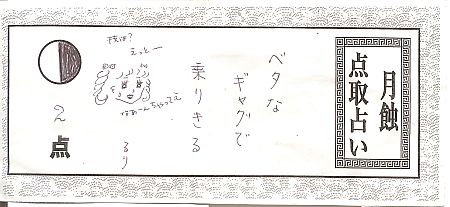 月蝕
点取占い
ベタな
ギャグで
乗りきる
るり
えっとー
なぁーんちゃってえ
2点